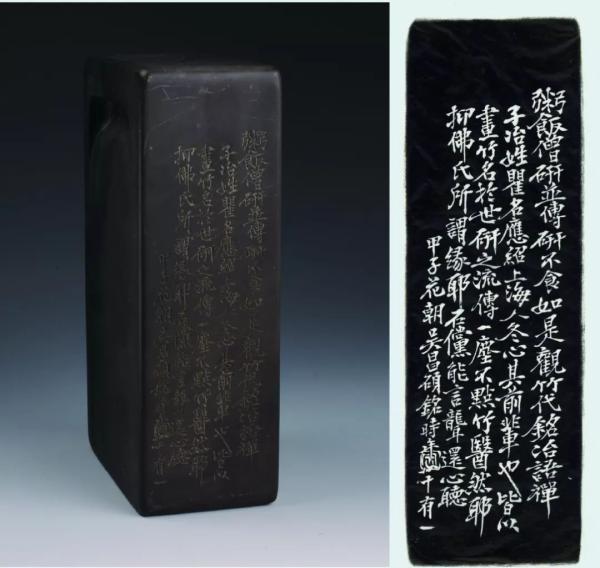 粥飯僧研並傳研不食如是觀竹代銘冶語禪
子冶姓瞿名應紹上海人冬心其前輩也皆以
畫竹名於世研之流傳一塵不點竹醫然耶
抑佛氏所謂緣耶石儻能言聾還心聽
甲子花朝吳昌碩銘時年八十有一